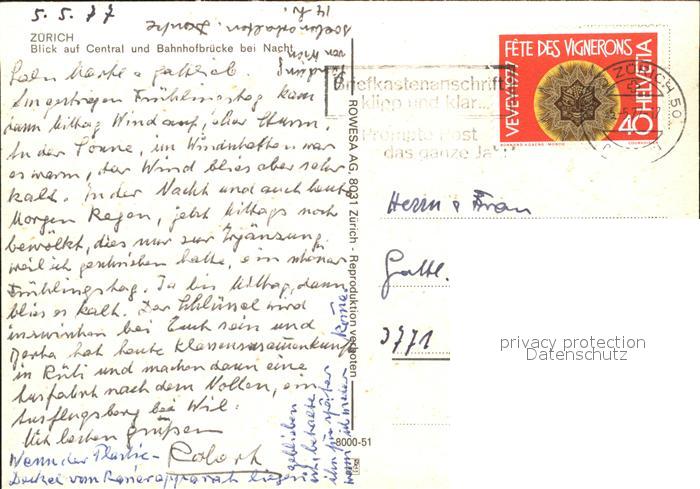 5. 5. 77
ZÜRICH
Blick auf Central und Bahnhofbrücke bei Nacht
Am gestrigen Frühlingstag kam
dann Mittag Wind auf, eher Sturm.
In der Sonne, im Windschatten war
es warm, der Wind blies aber sehr
kalt. In der Nacht und auch heute
Morgen Regen, jetzt Mittags noch
bewölkt, dies nur zur Ergänzung,
weil ich geschrieben hatte, ein schöner
Frühlingstag. Ja bis Mittag, dann
blies es kalt. Der Schlüssel wird
inzwischen bei Euch sein und
Berta hat heute Klassenzusammenkunft
in Rüti und machen dann eine
Ausfahrt nach dem Nollen, ein
Ausflugsberg bei Wil.
Mit lieben Grüssen
Robert
Wenn der Plastic-
Deckel vom Rasierapparat liegen
geblieben
ihn für später
wenn ich wieder komme
ROWESA AG, 8031 Zürich · Reproduktion verboten
8000-51
FÊTE DES VIGNERONS
VEVEY 1977
HELVETIA
40
COURVOISIER
Briefkastenanschrift
klipp und klar...
Prompte Post
das ganze Jahr!
ZÜRICH 50
Herrn & Frau
Gottl.
3771
privacy protection
Datenschutz